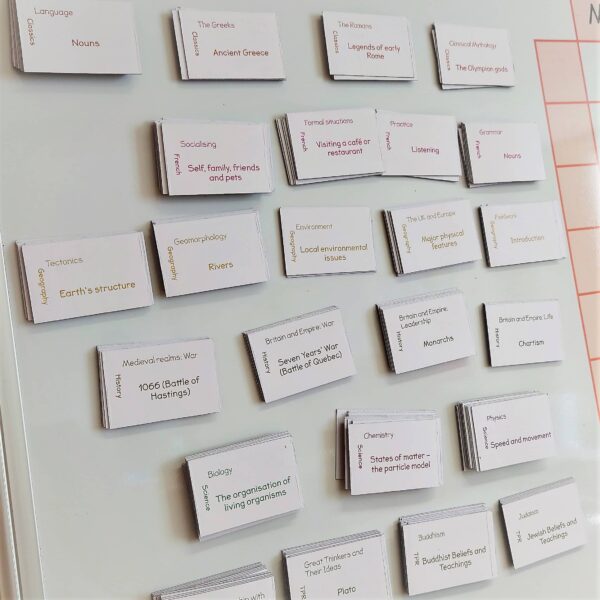 N
Language
Classics
Nouns
The Greeks
Classics
Ancient Greece
The Romans
Classics
Legends of early
Rome
Classical Mythology
Classics
The Olympian gods
Socialising
French
Self, family, friends
and pets
Formal situations
French
Visiting a café or
restaurant
Practice
French
Listening
Grammar
French
Nouns
Tectonics
Geography
Earth's structure
Geomorphology
Geography
Rivers
Environment
Geography
Local environmental
issues
The UK and Europe
Geography
Major physical
features
Fieldwork
Geography
Introduction
Medieval realms: War
History
1066 (Battle of
Hastings)
Britain and Empire: War
History
Seven Years' War
(Battle of Quebec)
Britain and Empire:
Leadership
History
Monarchs
Britain and Empire: Life
History
Chartism
Biology
Science
The organisation of
living organisms
Chemistry
Science
States of matter –
the particle model
Physics
Science
Speed and movement
with
Great Thinkers and
Their Ideas
TPR
Plato
Buddhism
TPR
Buddhist Beliefs and
Teachings
Judaism
TPR
Jewish Beliefs and
Teachings